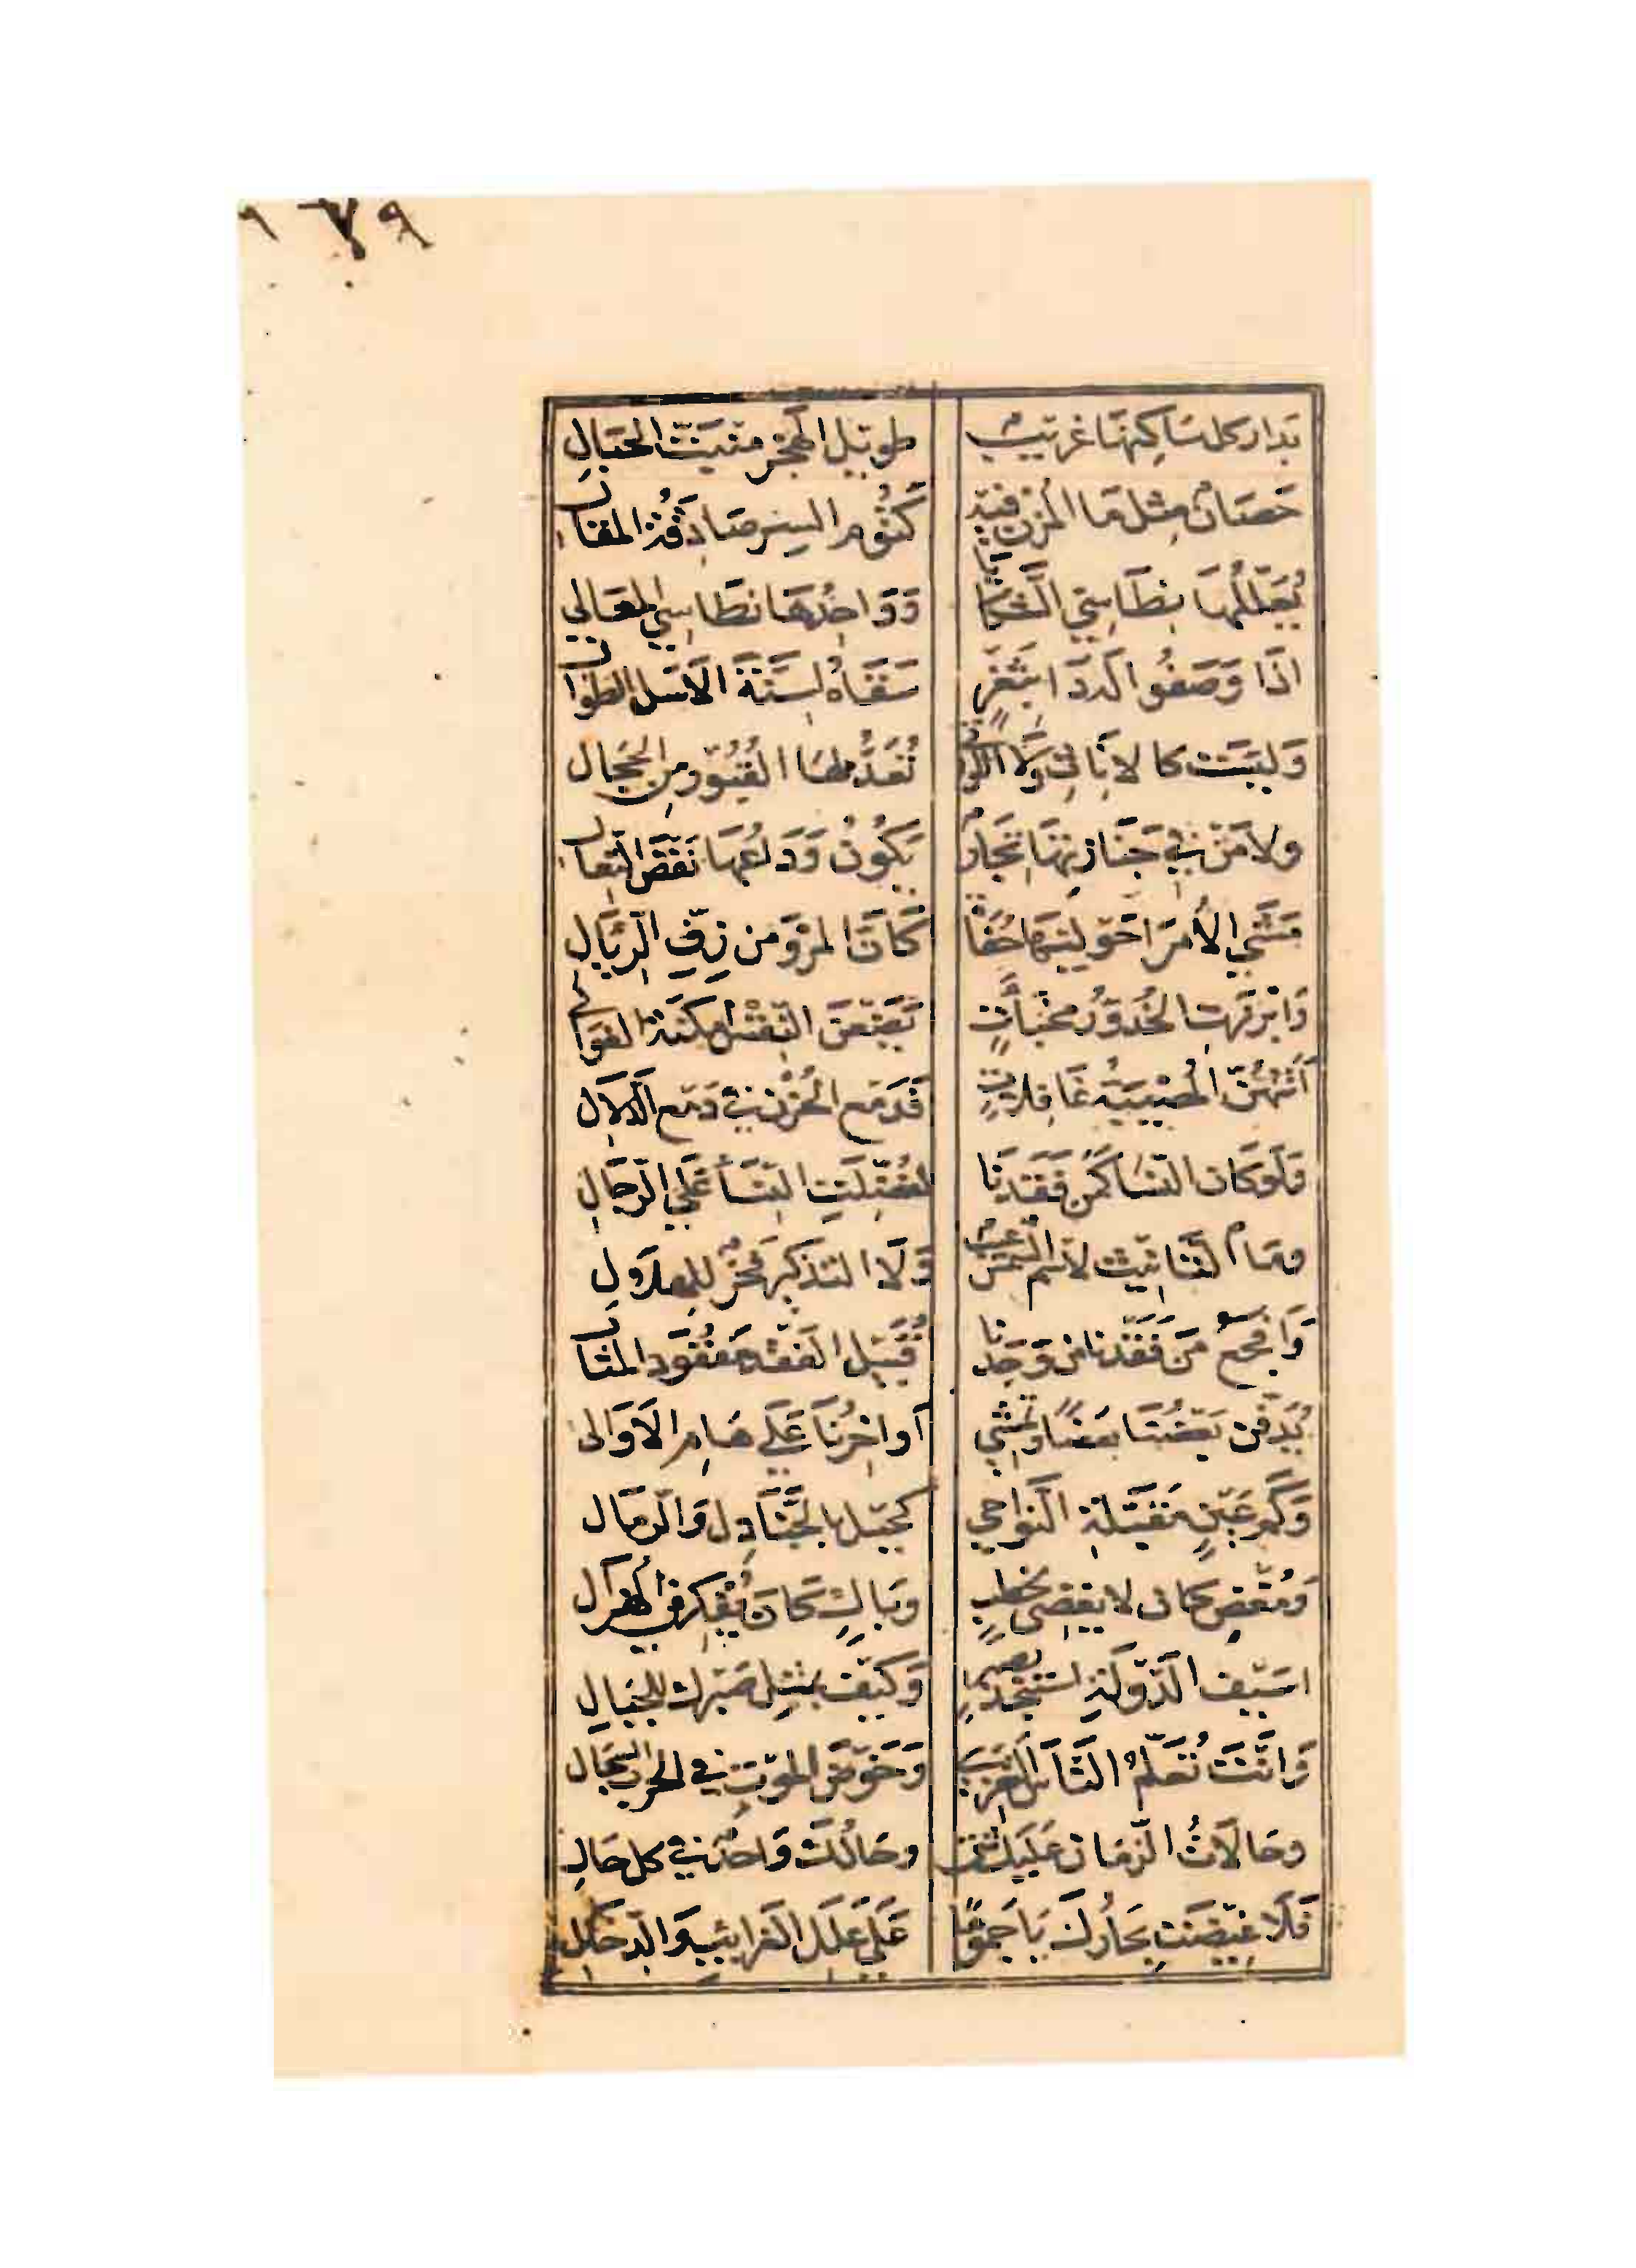 ١٧٩
بدار كل ساكنها غريب طويل الهجر منبت الحبال
حصان مثل ماء المزن فيه كتوم السر صادقة المقال
يعللها نطاسي الشكايا وواحدها نطاسي المعالي
اذا وصفوا له داء بثغر سقاه اسنة الاسل الطوال
وليست كالاناث ولا اللواتي تعد لها القبور من الحجال
ولا من في جنازتها تجار يكون وداعها نفض النعال
مشي الأمرا حوليها حفاة كان المرو من زف الريال
وابرزت الخدور مخبآت يضعن النقس امكنة الغوالي
أتتهن المصيبة غافلات فدمع الحزن في دمع الدلال
ولو كان النسا كمن فقدنا لفضلت النسأ علي الرجال
وما التانيث لاسم الشمس عيب ولا التذكير فخر للهلال
وافجع من فقدنا من وجدنا قبيل الفقد مفقود المثال
يدفن بعضنا بعضا وتمشي اواخرنا علي هام الاوالى
وكم عين مقبلة النواحي كحيل بالجنادل والرمال
ومغض كان لا يغضي لخطب وبال كان يفكر في الهزال
اسيف الدولة استنجد بصبر وكيف بمثل صبرك للجبال
وانت تعلم الناس التعزي وخوض الموت في الحرب السجال
وحالات الزمان عليك شتى وحالك واحد في كل حال
فلا غيضت بحارك يا جموما علي علل الغرايب والدخال